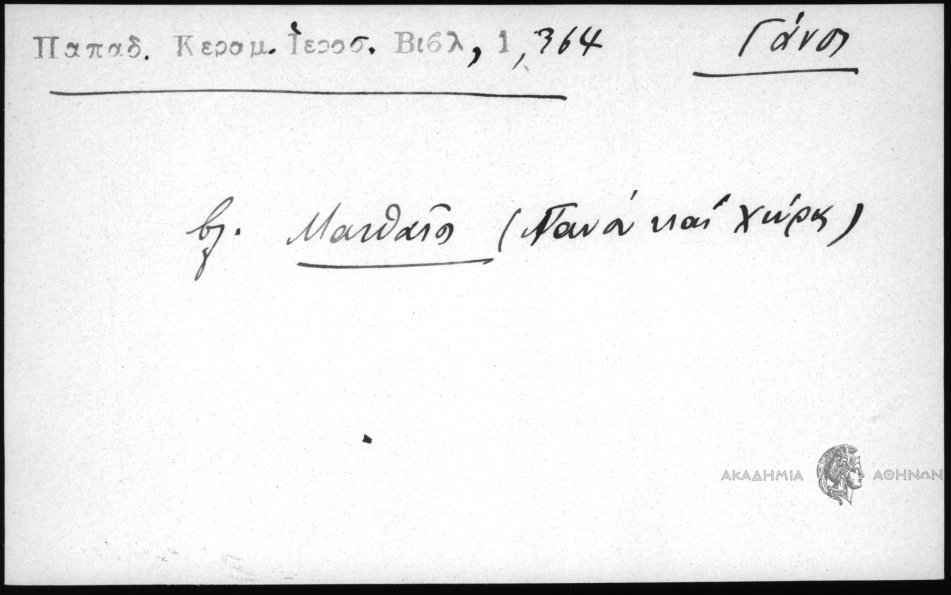 Παπαδ. Κεραμ. Ἱεροσ. Βιβλ, 1, 364
Γάνος
βλ. Ματθαῖος (Γανου καὶ Χώρας)
ΑΚΑΔΗΜΙΑ ΑΘΗΝΩΝ